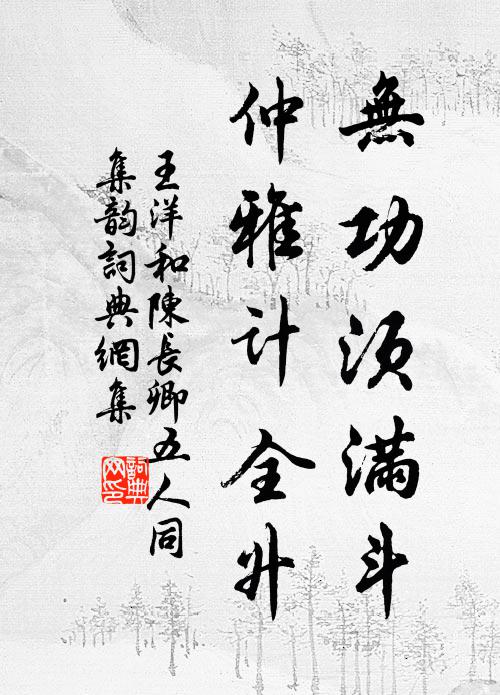 無功須滿斗
仲雅計全升
王洋和陳長卿五人同
集韵詞典網集
詞典
网印